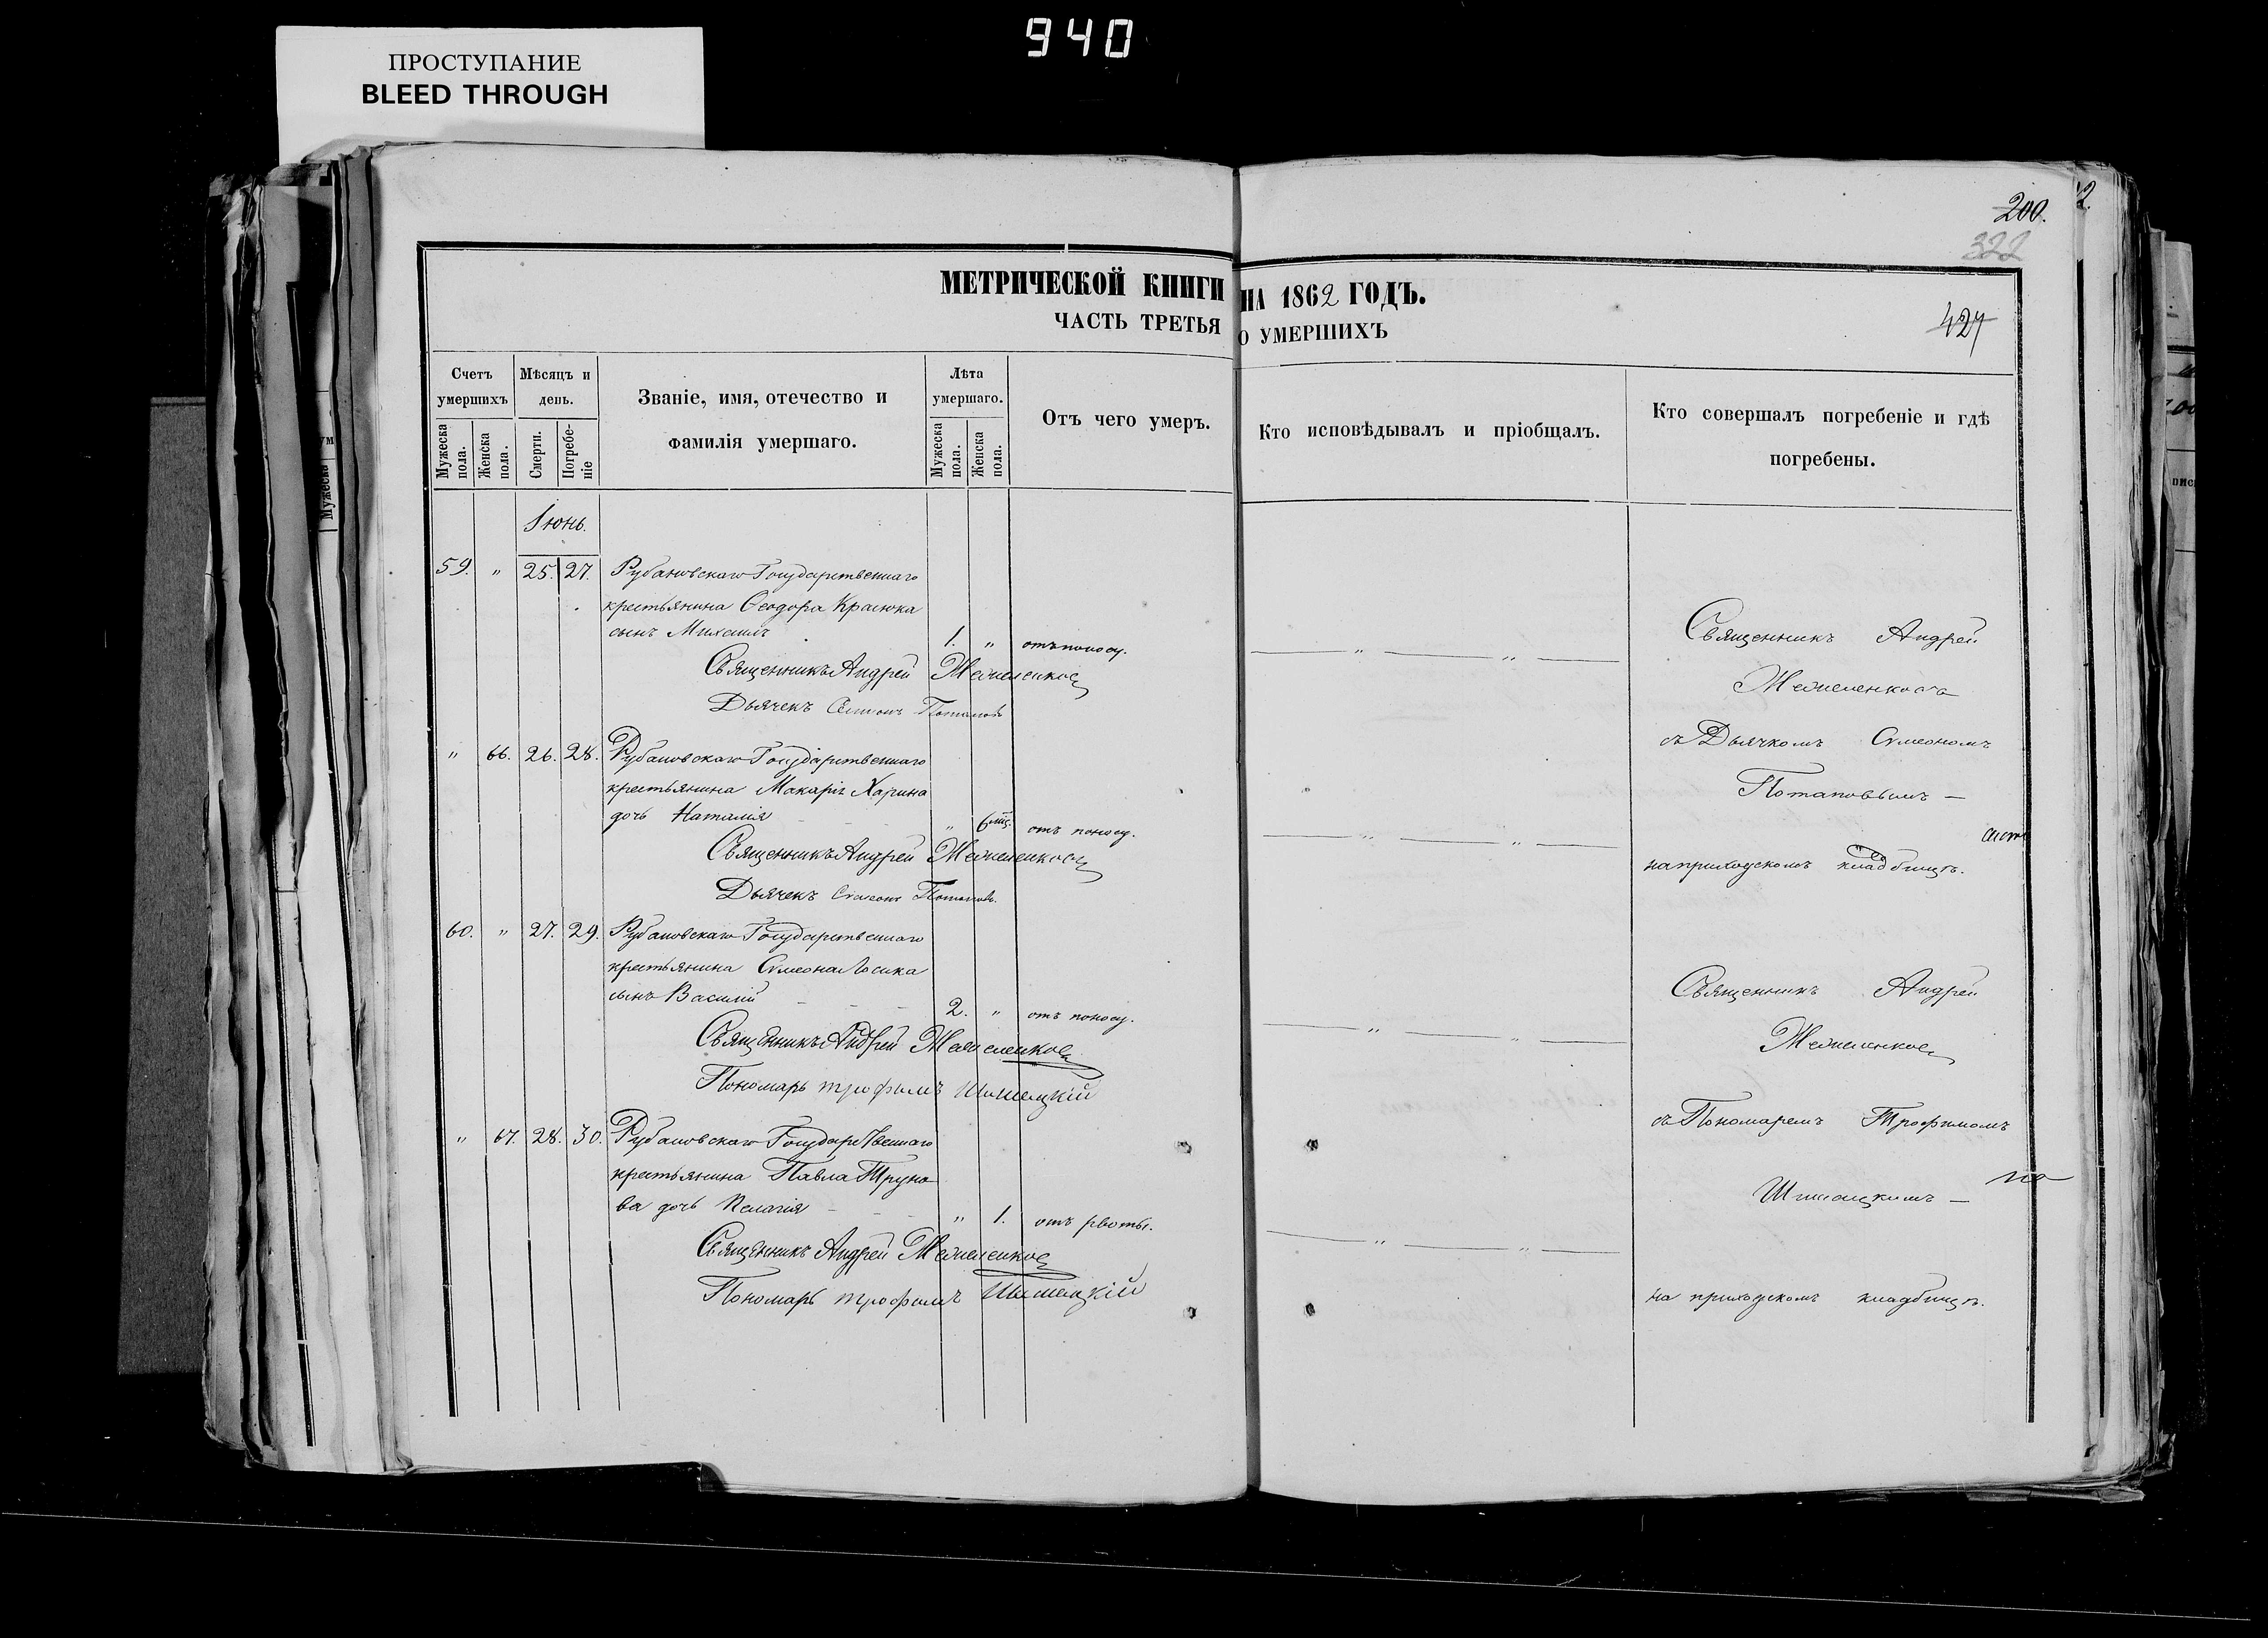 940
ПРОСТУПАНИЕ
BLEED THROUGH
200.
322
427
МЕТРИЧЕСКОЙ КНИГИ НА 1862 ГОДЪ.
ЧАСТЬ ТРЕТЬЯ О УМЕРШИХЪ
Счетъ умершихъ
Мужеска пола.
Женска пола.
Мѣсяцъ и день.
Смерти.
Погребеніе
Званіе, имя, отечество и фамилія умершаго.
Лѣта умершаго.
Мужеска пола.
Женска пола.
Отъ чего умеръ.
Кто исповѣдывалъ и пріобщалъ.
Кто совершалъ погребеніе и гдѣ погребены.
Іюнь.
59. " 25. 27. Рубановскаго Государственнаго
крестьянина Ѳеодора Красюка
сынъ Михаилъ 1. " отъ поносу.
Священникъ Андрей
Дьячекъ Симеонъ Потаповъ
" 66. 26. 28. Рубановскаго Государственнаго
крестьянина Макарія Харина
дочь Наталія " 6 мц. отъ поносу.
Священникъ Андрей
Дьячекъ Симеонъ Потаповъ.
60. " 27. 29. Рубановскаго Государственнаго
крестьянина Симеона
сынъ Василій 2. " отъ поносу.
Священникъ Андрей
Пономарь Трофимъ Шишацкій
" 67. 28. 30. Рубановскаго Государственнаго
крестьянина Павла Труно
ва дочь Пелагія " 1. отъ рвоты.
Священникъ Андрей
Пономарь Трофимъ Шишацкій
Священникъ Андрей
съ Дьячкомъ Симеономъ
Потаповымъ —
на приходскомъ кладбищѣ.
Священникъ Андрей
съ Пономаремъ Трофимомъ
Шишацкимъ —
на приходскомъ кладбищѣ.